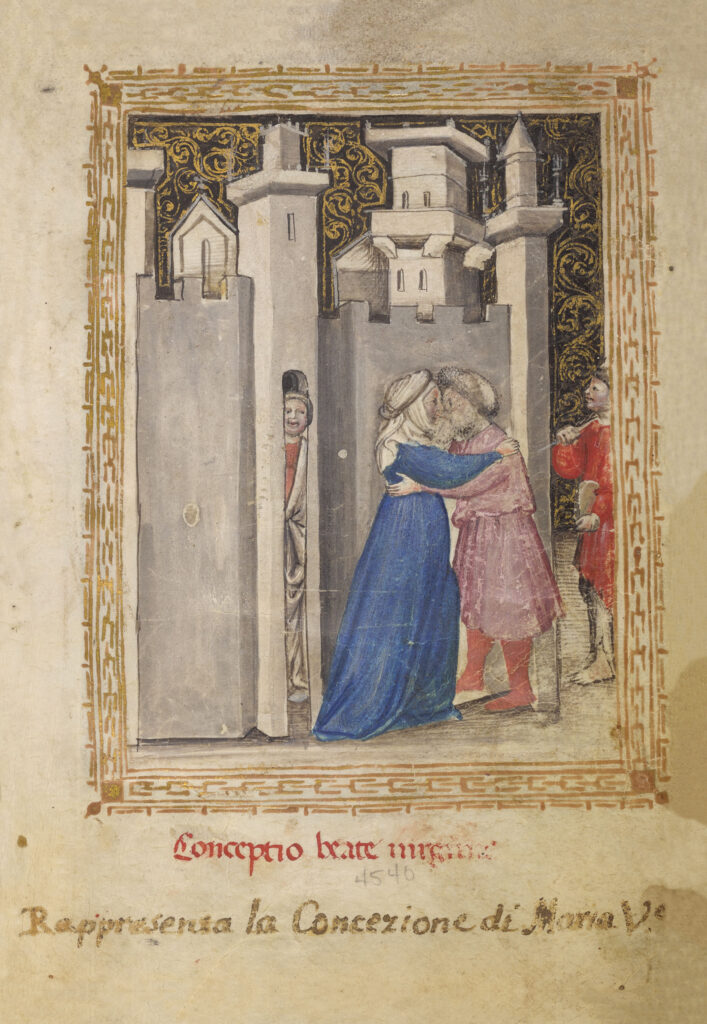 Conceptio beate virginis
4540
Rappresenta la Concezione di Maria V.e